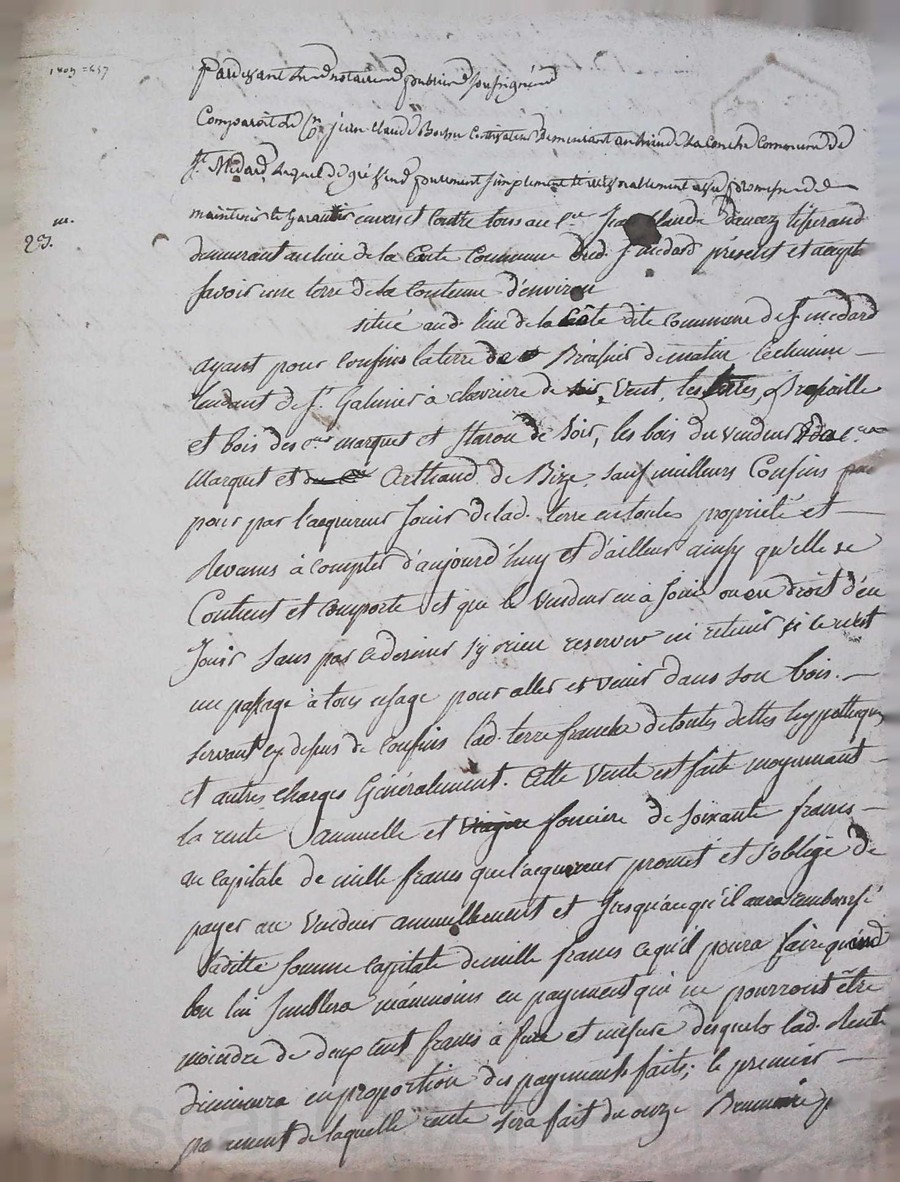 Pardevant les notaires publics soussignés
Comparoit le Cn jean claude Cultivateur demeurant au lieu de la Conche Commune de
St. Medard, lequel de gré vend purement simplement et irrévocablement avec promesse de
maintenir et Garantir envers et Contre tous au Cen Jean Claude tisserand
demeurant au lieu de la Côte Commune dud. St medard présent et accept
savoir une terre de la Contenue d'environ
situé aud. lieu de la Côte dite Commune de St medard
ayant pour Confins la terre de matin le chemin
tendant de St. Galmier à chevriere de Vent, les Brosaille
et bois des cens marquet et Staron de Soir, les bois du vendeur
Marquet et Arthaud de Bize, sauf meilleurs Confins
pour par l'acquereur Jouir de lad. terre en toutes propriété et
Revenus à Compter d'aujourd'huy et d'ailleur ainsy qu'elle se
Contient et Comporte et que le Vendeur en a Joui ou eu droit d'en
Jouir Sans par ce dernier s'y rien reserver ni retenir si ce n'est
un passage à tous usage pour aller et venir dans son bois.
servant cy dessus de Confins lad. terre franche de toutes dettes hypotheques
et autres charges Généralement. Cette Vente est faite moyennant
la rente annuelle et foncière de soixante francs
au Capitale de mille francs que l'acquereur promet et s'oblige de
payer au Vendeur annuellement et Jusqu'au qu'il aura remboursé
laditte somme Capitale de mille francs ce qu'il poura faire quand
bon lui semblera néanmoins en payement qui ne pourront être
moindre de deux cent francs à fur et mesure desquels lad. Rente
diminuera en proportion des payements faits; le premier
payement de laquelle rente sera fait du onze Brumaire